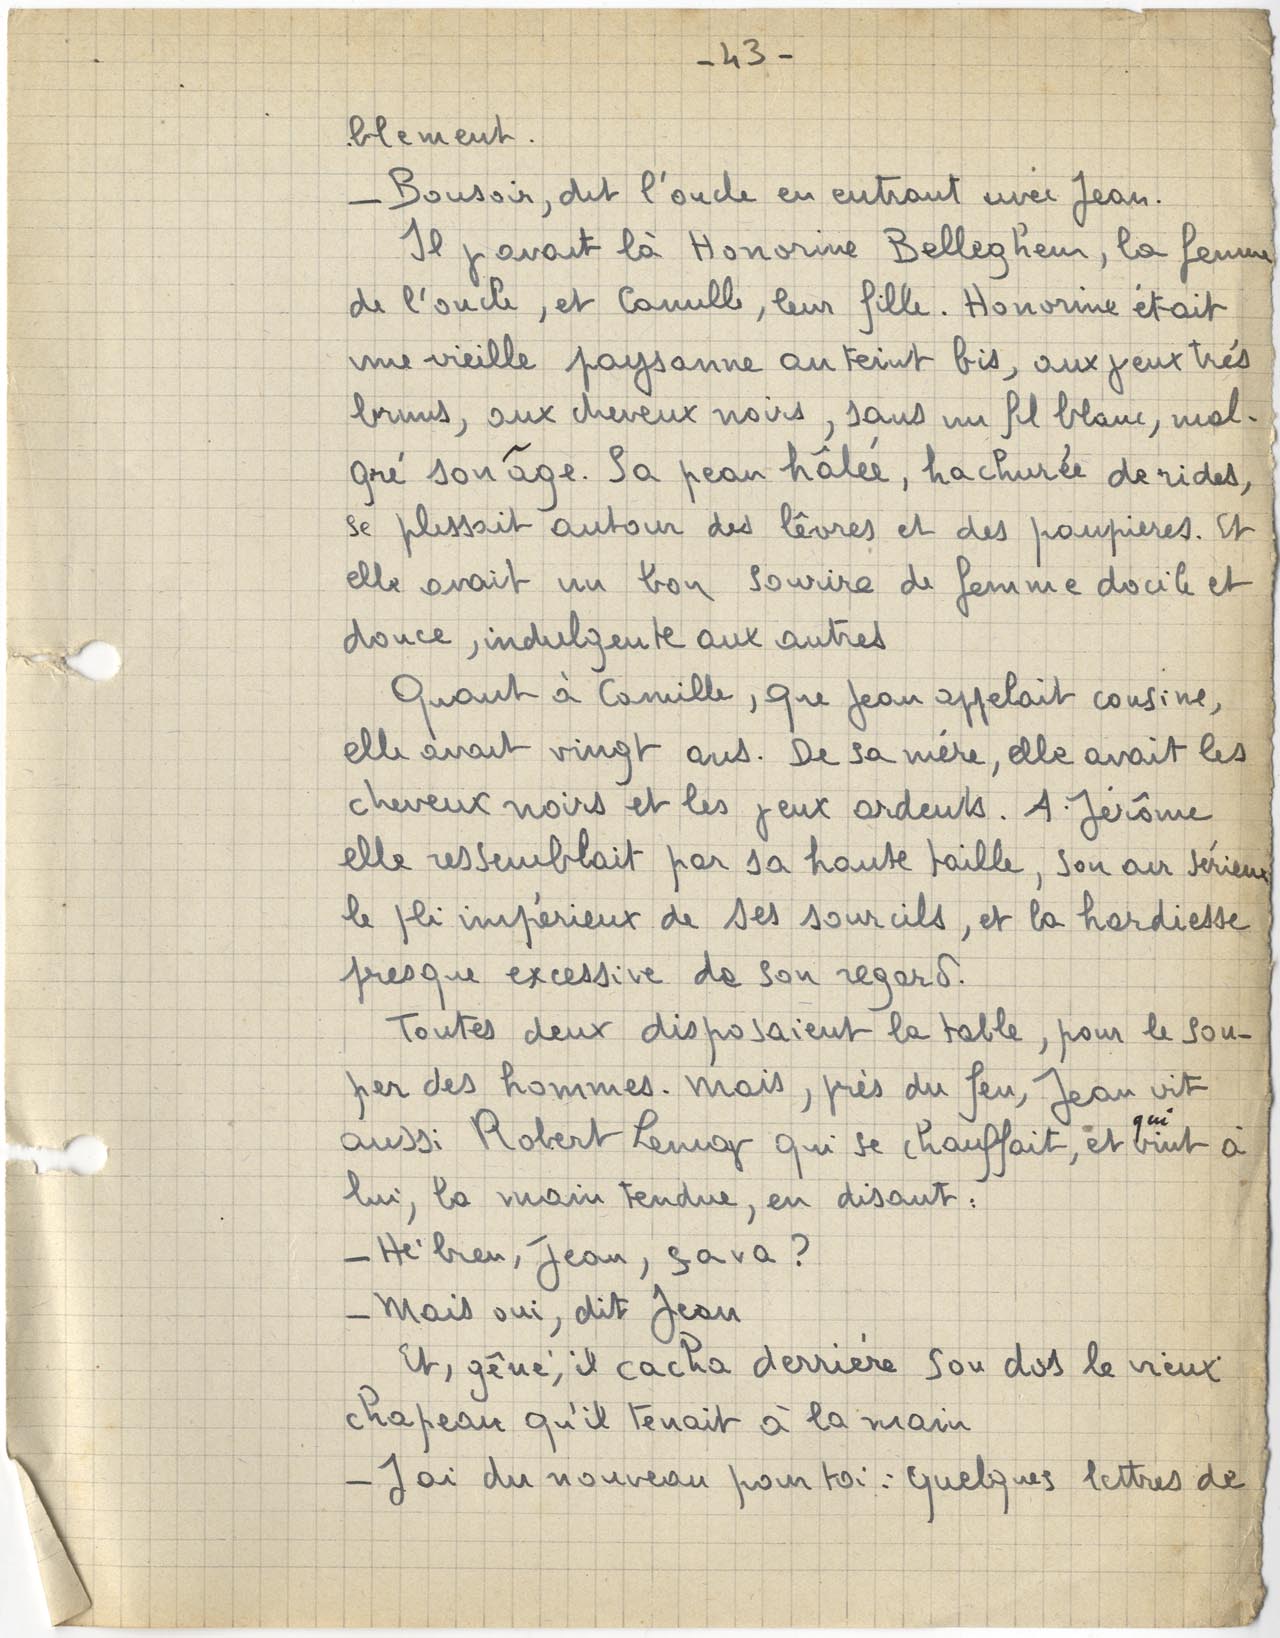 - 43 -
blement.
— Bonsoir, dit l'oncle en entrant avec Jean.
Il y avait là Honorine Belleghem, la femme
de l'oncle, et Camille, leur fille. Honorine était
une vieille paysanne au teint bis, aux yeux très
bruns, aux cheveux noirs, sans un fil blanc, mal-
gré son âge. Sa peau hâlée, hachurée de rides,
se plissait autour des lèvres et des paupieres. Et
elle avait un bon sourire de femme docile et
douce, indulgente aux autres
Quant à Camille, que Jean appelait cousine,
elle avait vingt ans. De sa mère, elle avait les
cheveux noirs et les yeux ardents. A Jérôme
elle ressemblait par sa haute taille, son air sérieux
le pli impérieux de ses sourcils, et la hardiesse
presque excessive de son regard.
Toutes deux disposaient la table, pour le sou-
per des hommes. Mais, près du feu, Jean vit
aussi Robert Lemoy qui se chauffait, et qui vint à
lui, la main tendue, en disant :
— Hé bien, Jean, ça va ?
— Mais oui, dit Jean
Et, gêné, il cacha derrière son dos le vieux
chapeau qu'il tenait à la main
— J'ai du nouveau pour toi : quelques lettres de